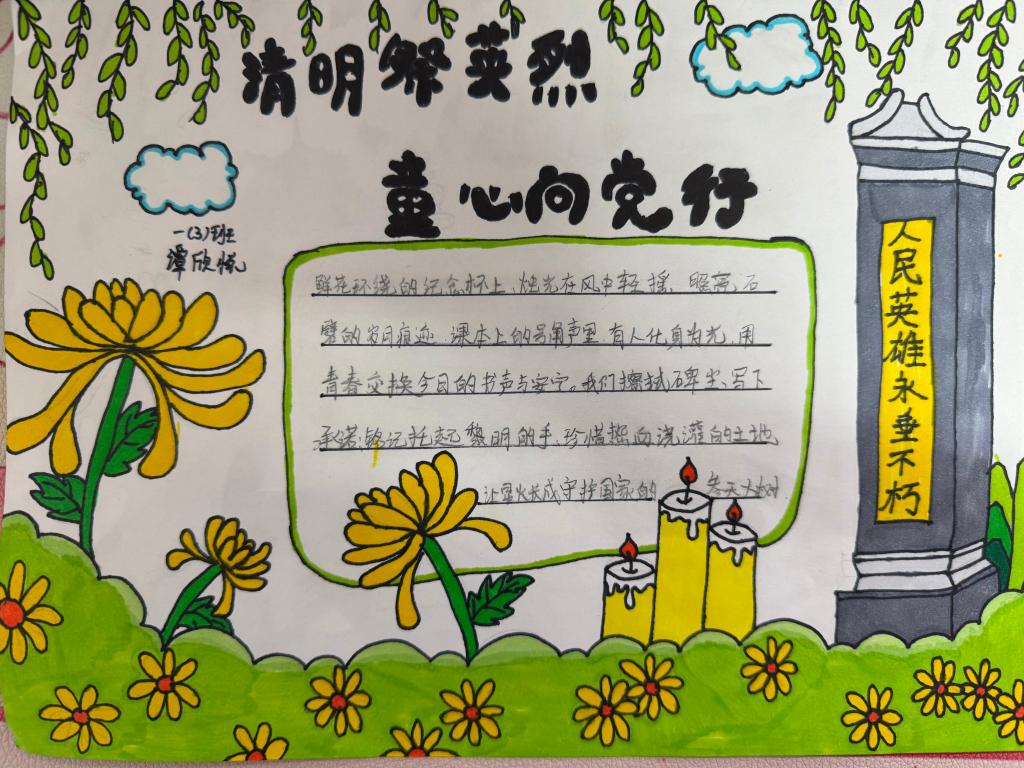 清明祭英烈
童心向党行
一(3)班
谭欣悦
鲜花环绕的纪念杯上、烛光在风中轻摇、照亮石
劈的岁月痕迹.课本上的号角声里.有人化身为光.用
青春交换今日的书声与安宁。我们擦拭碑尘、写下
承诺:铭记托起黎明的手、珍惜热血浇灌的土地
让星火长成守护国家的 参天大树.
人民英雄永垂不朽